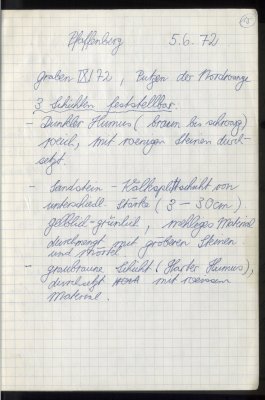 Pfaffenberg 5.6.72
Graben IX/72, Putzen der Nordwange
3 Schichten feststellbar.
- Dunkler Humus (braun bis schwarz),
weich, mit wenigen Steinen durch-
setzt.
- Sandstein - Kalksplittschicht von
unterschiedl. Stärke (3 - 30cm)
gelblich-grünlich, mehliges Material
durchmengt mit größeren Steinen
und Mörtel.
- graubraune Schicht (Harter Humus),
durchsetzt mit
Material.